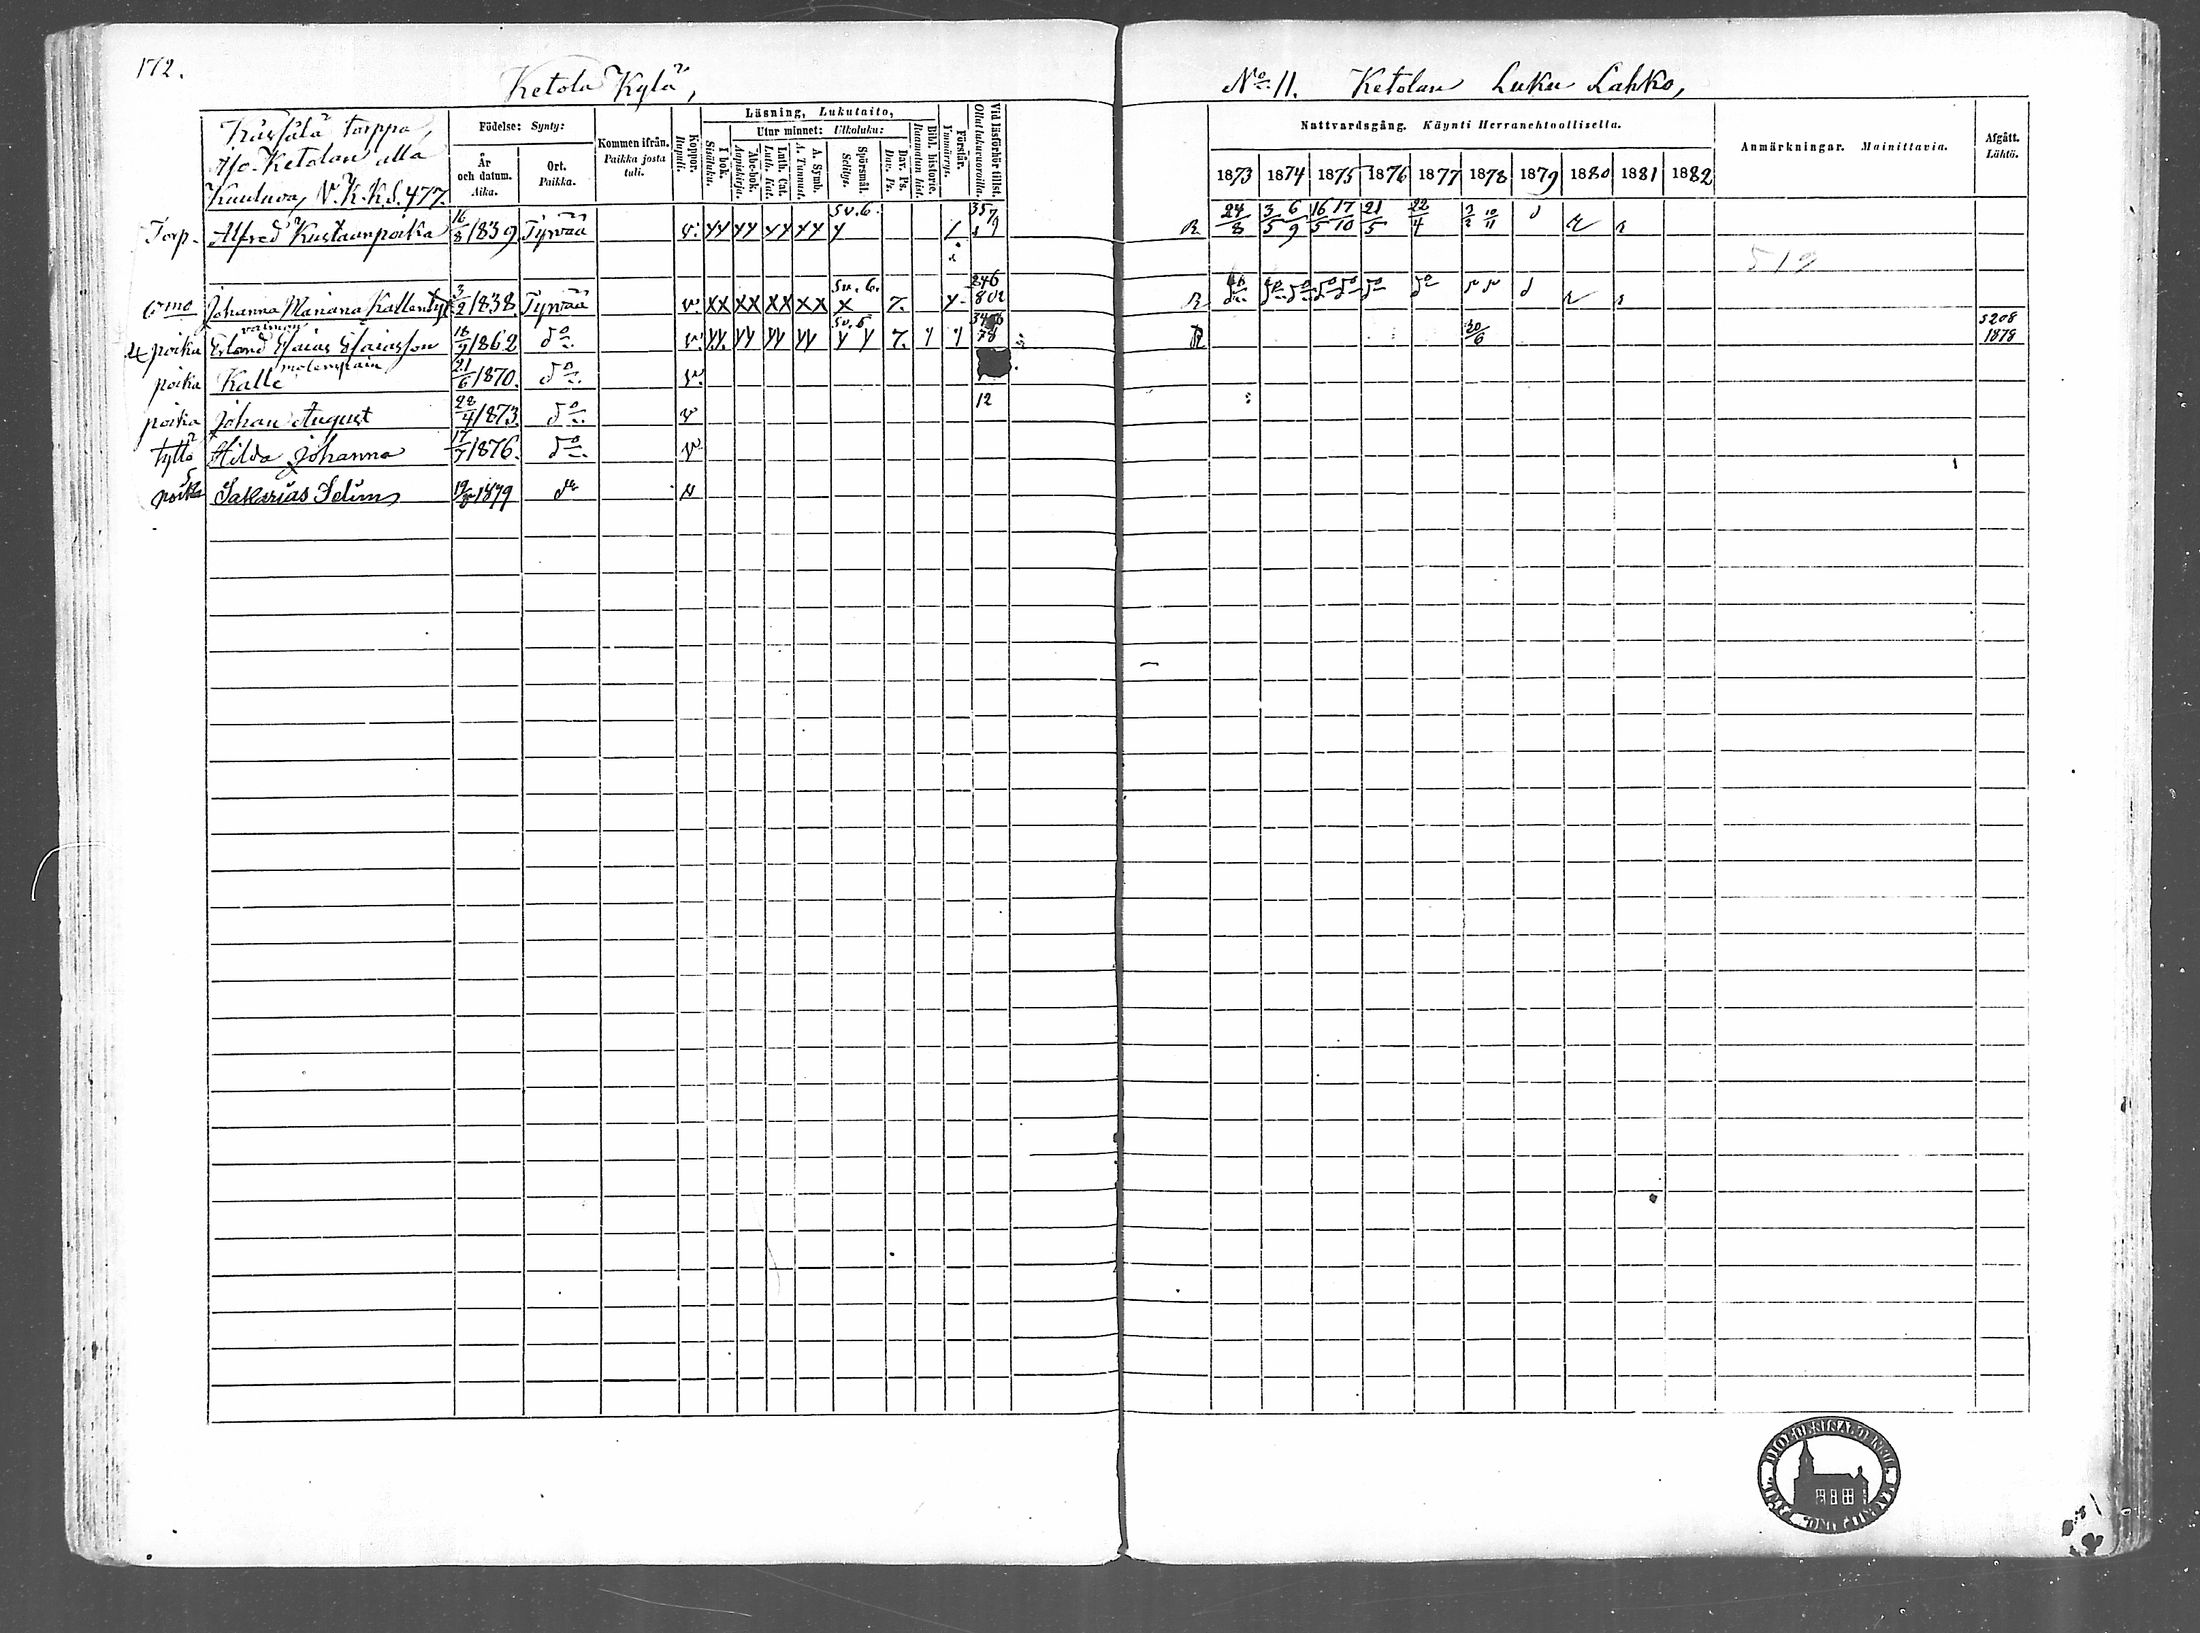 172.
Ketola Kylä,
No 11. Ketolan Luku Lahko,
torppa,
Ketolan alla
V. K. K. S. 477.
Födelse: Synty:
År och datum. Aika.
Ort. Paikka.
Kommen ifrån. Paikka josta tuli.
Koppor. Rupuli.
Läsning, Lukutaito,
I bok. Sisäluku.
Utur minnet: Ulkoluku:
Abc-bok. Aapiskirja.
Luth. Cat. Luth. Kat.
A. Symb. A. Tunnust.
Spörsmål. Selitys.
Dav. Ps. Dav. Ps.
Bibl. historie. Raamatun hist.
Förstår. Ymmärrys.
Vid läsförhör tillst. Ollut lukuvuoroilla.
Nattvardsgång. Käynti Herranehtoollisella.
1873 1874 1875 1876 1877 1878 1879 1880 1881 1882
Anmärkningar. Mainittavia.
Afgått. Lähtö.
Torp. Alfred Kustaanpoika 16/8 1839 Tyrvää v. yy yy yy yy sv. 6. y 24/8 3/5 6/9 16/5 17/10 21/5 22/4
Johanna Mariana 3/2 1838 Tyrvää v. xx xx xx xx sv. 6. x 7.
vaimon
poika Erland Esaias Esaiasson 18/9 1862 do v. yy yy yy yy sv. 6 y y 7. y y 78 30/6 S 208 1878
molempain
poika Kalle 21/6 1870. do v.
poika Johan August 28/4 1873. do v 12
tyttö Hilda Johanna 17/7 1876. do v
poika Sakarias Selim 1879 do v